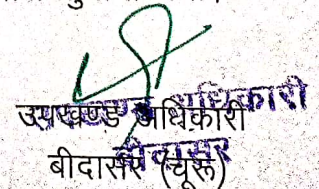 उपखण्ड अधिकारी
बीदासर (चूरू)
उपखण्ड अधिकारी
बीदासर